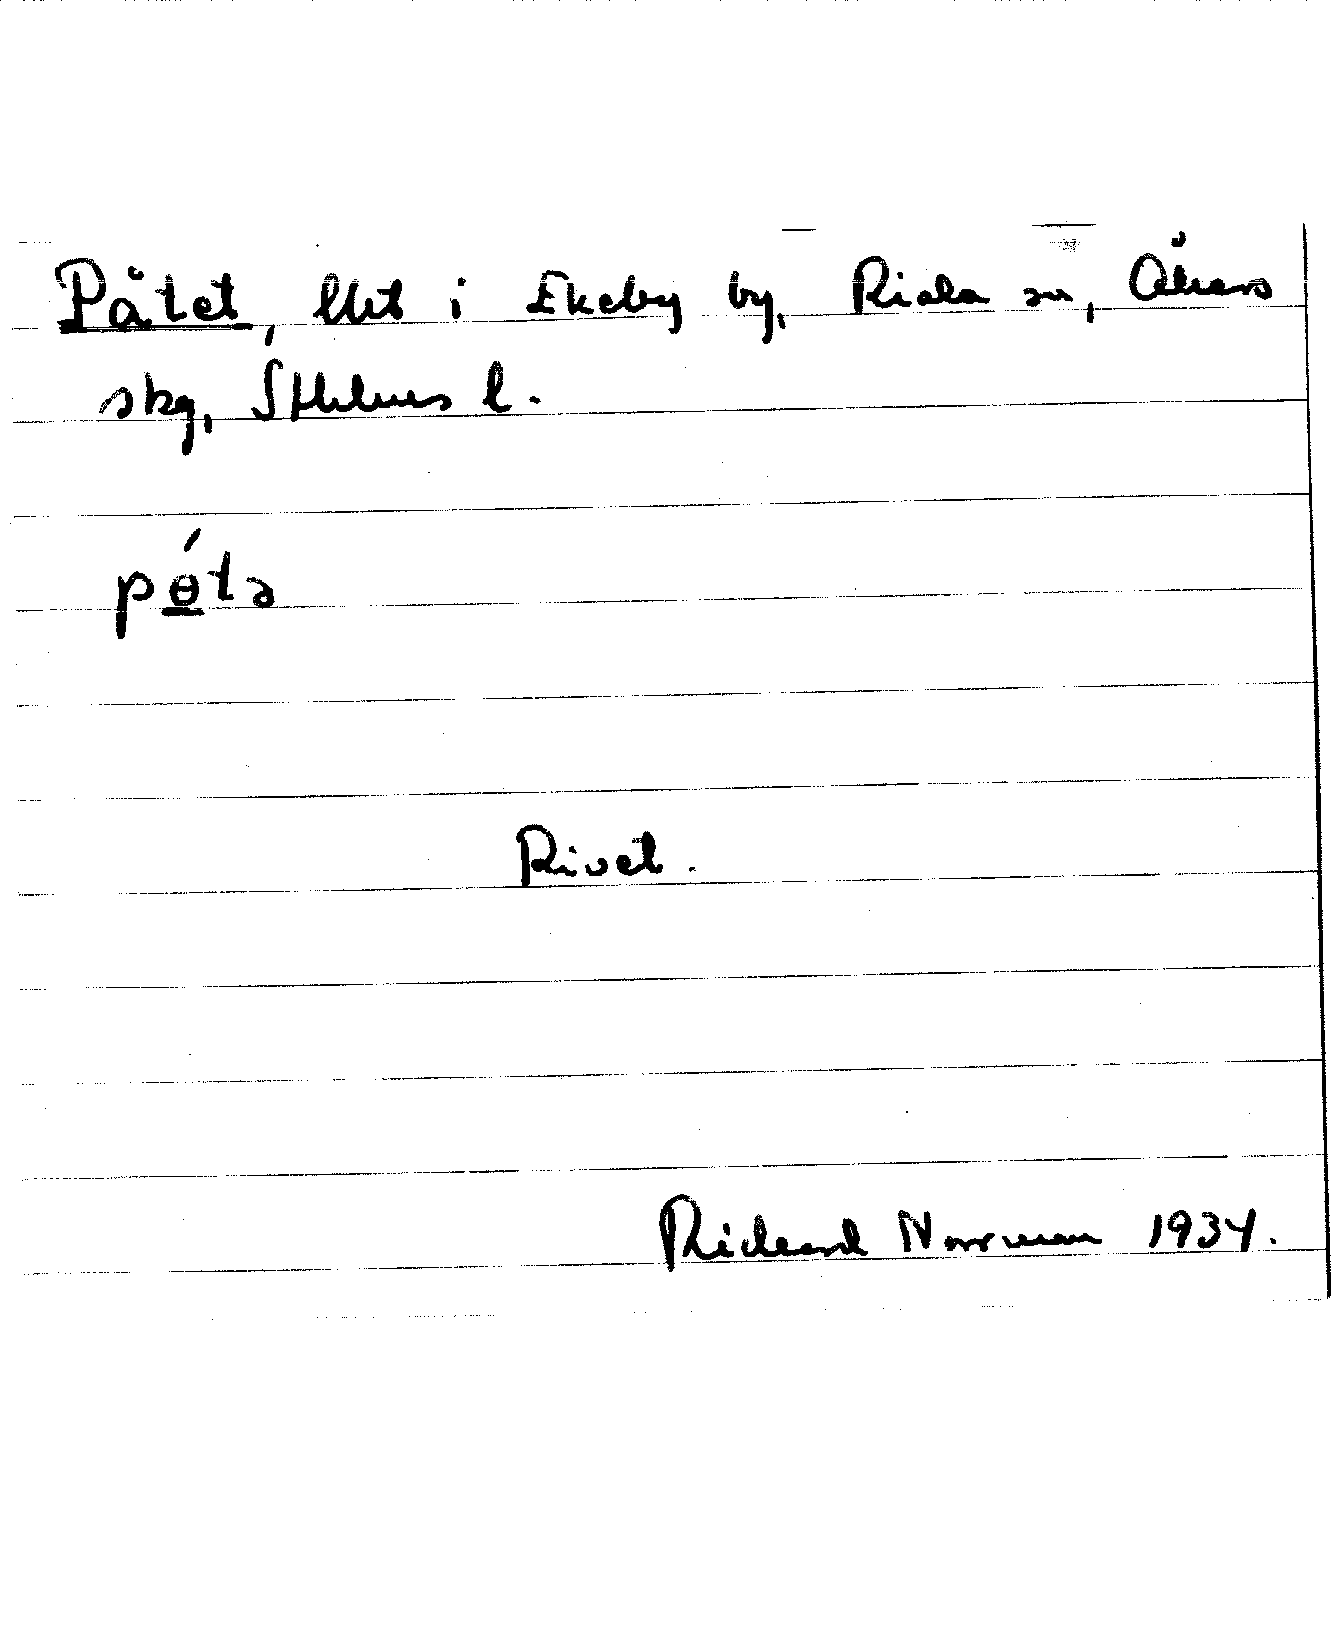 Påtet, lht i Ekeby by, Riala sn, Åkers
skg, Sthlms l.
pó̱tə
Rivet.
Rickard Norrman 1934.